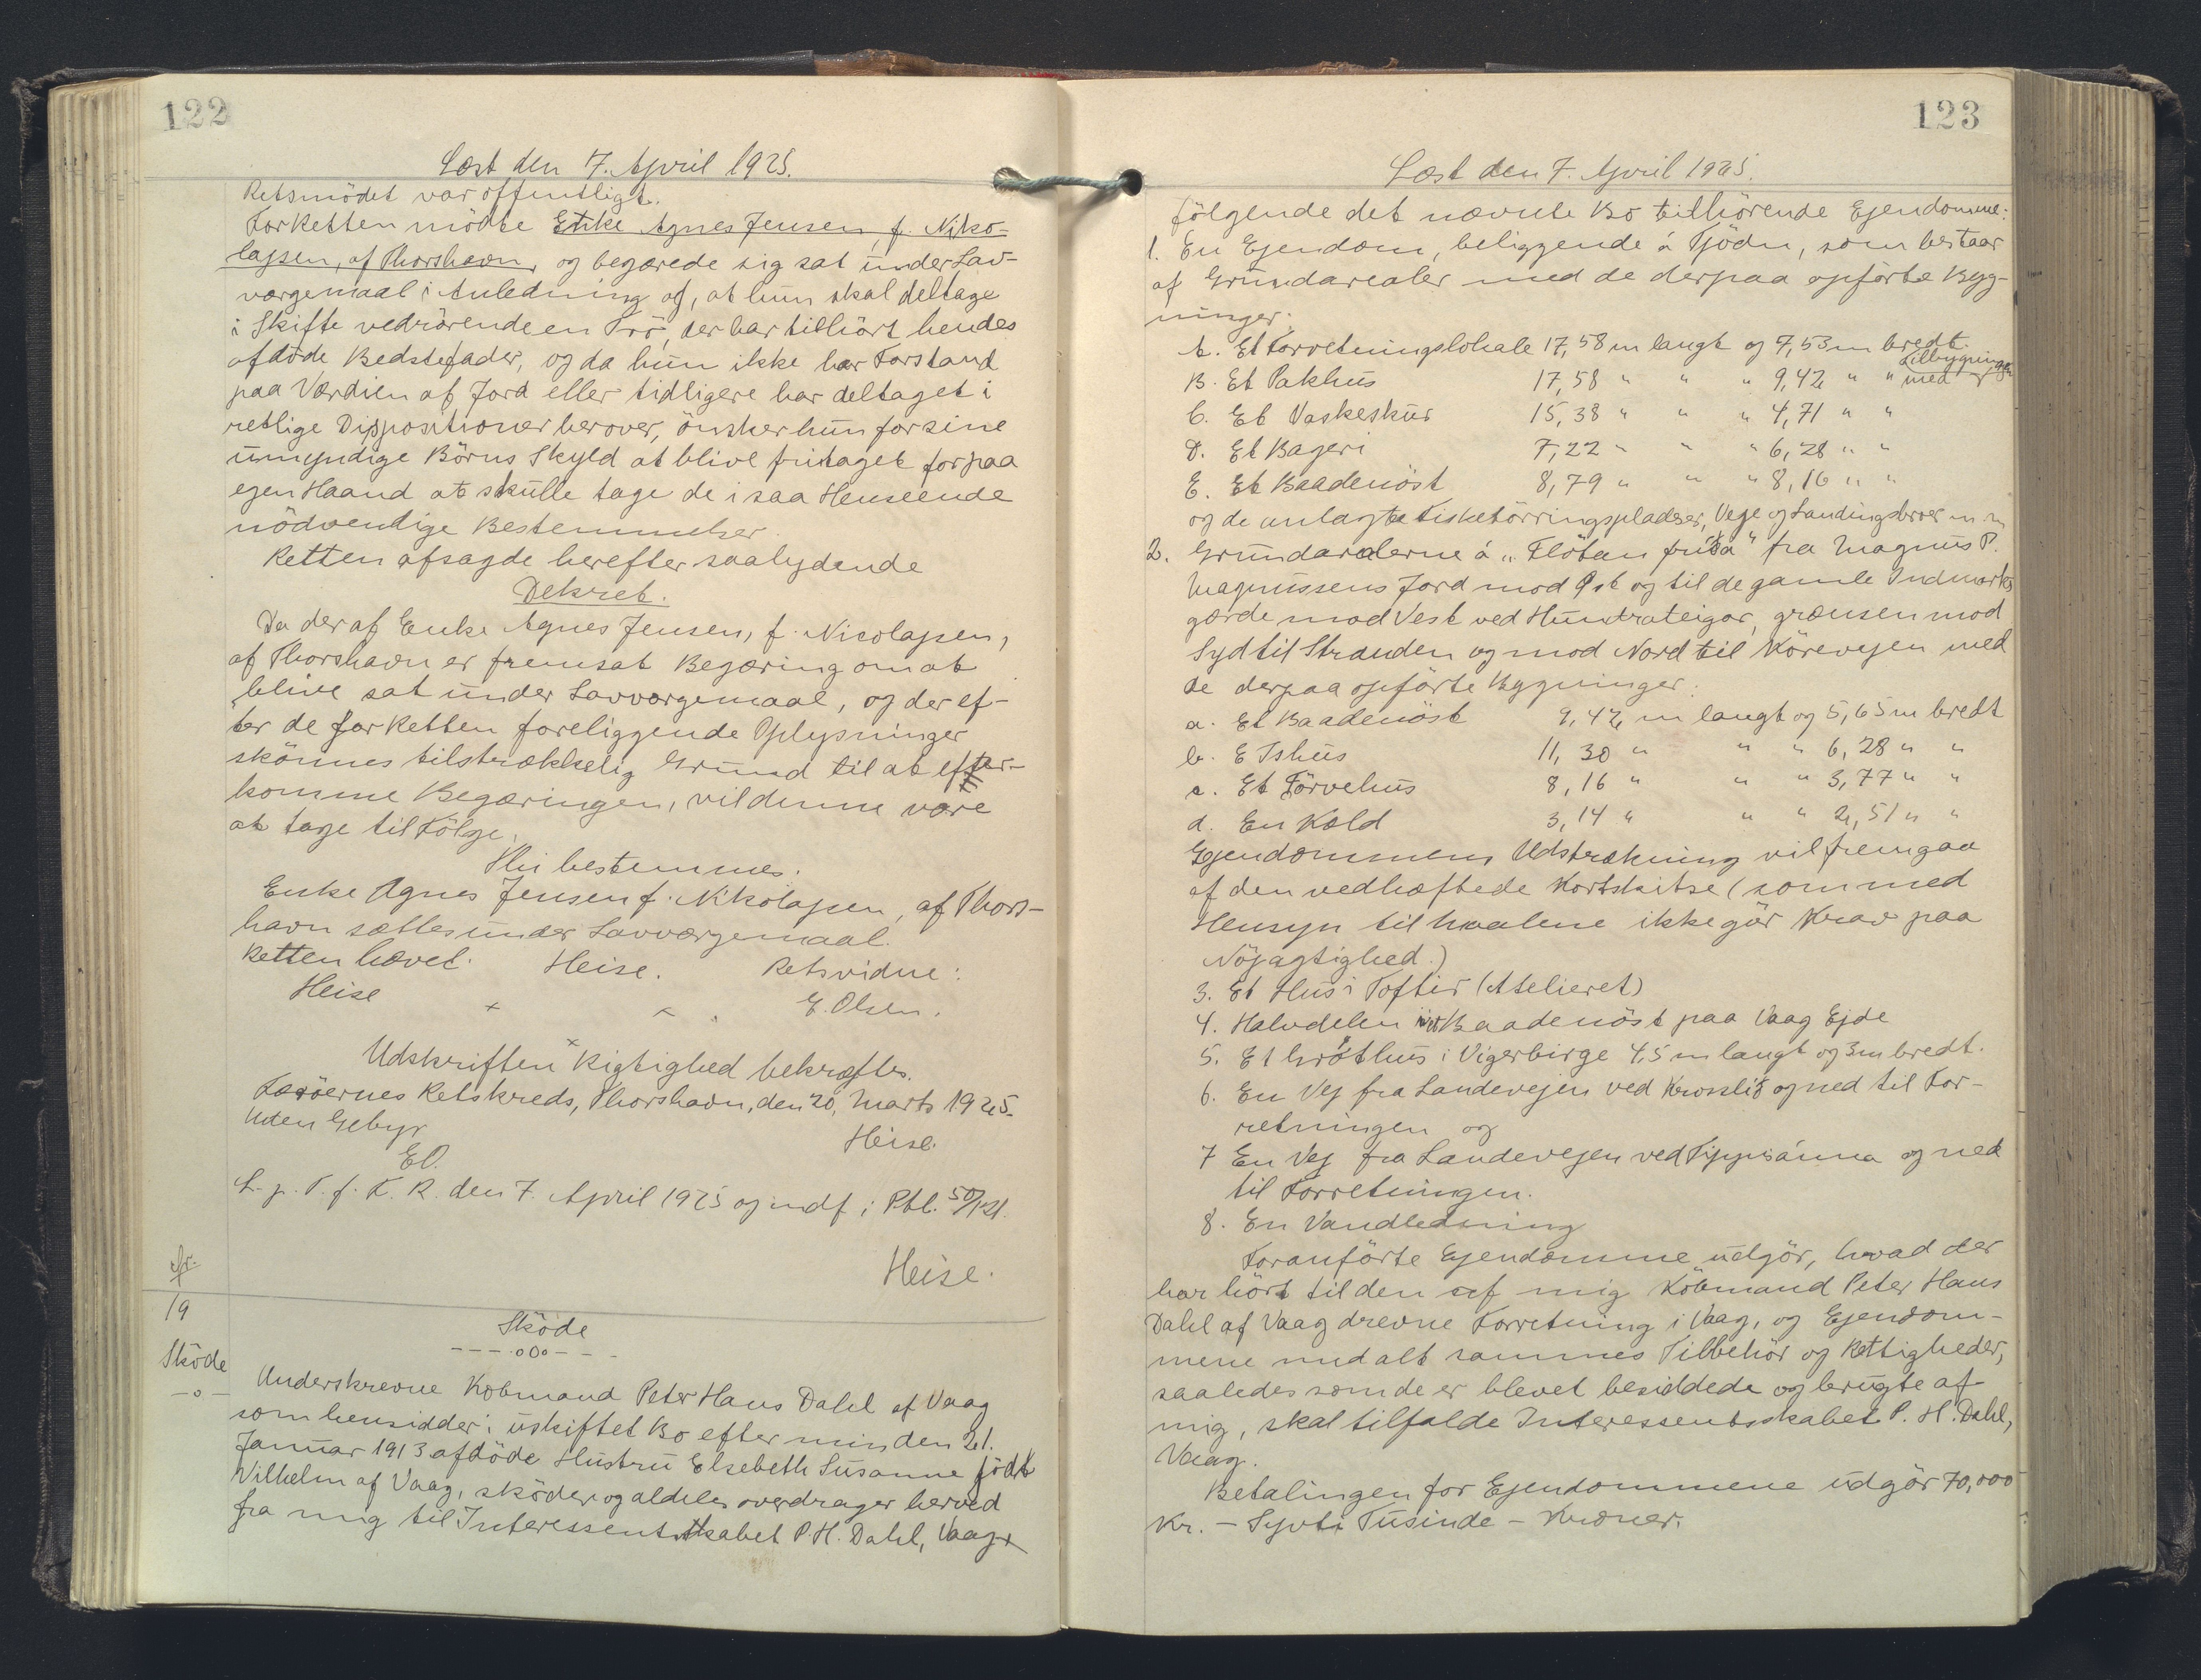 122
Læst den 7. April 1925.
Retsmödet var offentligt.
For Retten mödte Enke Agnes Jensen, f. Niko-
lajsen, af Thorshavn, og begærede sig sat under Lav-
værgemaal i Anledning af, at hun skal deltage
i Skifte vedrörende en Trö, der har tilhört hendes
afdöde Bedstefader, og da hun ikke har Forstand
paa Værdien af Jord eller tidligere har deltaget i
retlige Dispositioner herover, önsker hun for sine
umyndige Börns Skyld at blive fritaget for paa
egen Haand at skulle tage de i saa Henseende
nödvendige Bestemmelser.
Retten afsagde herefter saalydende
Dekret.
Da der af Enke Agnes Jensen, f. Nicolajsen,
af Thorshavn er fremsat Begæring om at
blive sat under Lavværgemaal, og der ef-
ter de for Retten foreliggende Oplysninger
skönnes tilstrækkelig Grund til at efter-
komme Begæringen, vil denne være
at tage til Fölge.
Thi bestemmes:
Enke Agnes Jensen f. Nikolajsen, af Thors-
havn sættes under Lavværgemaal.
Retten hævet. Heise. Retsvidne:
Heise E. Olsen.
Udskriftens Rigtighed bekræftes.
Færöernes Retskreds, Thorshavn, den 20, Marts 1925.
Uden Gebyr Heise.
EO.
L. p. T. f. F. R. den 7. April 1925 og indf i Ptbl. 50/121.
Heise.
19
Sköde
Sköde
---oOo---
-o-
Underskrevne Købmand Peter Hans Dahl af Vaag
som hensidder i uskiftet Bo efter min den 21.
Januar 1913 afdöde Hustru Elsebeth Susanne födt
Vilhelm af Vaag, sköder og aldeles overdrager herved
fra mig til Interessentskabet P. H. Dahl, Vaag
123
Læst den 7. April 1925.
fölgende det nævnte Bo tilhörende Ejendomme:
1. En Ejendom, beliggende á Tjödn, som bestaar
af Grundarealer med de derpaa opförte Byg-
ninger:
A. Et Forretningslokale 17,58 m langt og 7,53 m bredt.
B. Et Pakhus 17,58 " " " 9,42 " " med tilbygninger
C. Et Vaskeskur 15,38 " " " 4,71 " "
D. Et Bageri 7,22 " " " 6,28 " "
E. Et Baadenöst 8,79 " " " 8,16 " "
og de anlagte Fisketörringspladser, Veje og Landingsbroer m m
2. Grundarealerne á "Flötan fríða" fra Magnus P.
Magnussens Jord mod Öst og til de gamle Indmarks
gærde mod Vest ved Hundrateigar, grænsen mod
Syd til Stranden og mod Nord til Körevejen med
de derpaa opförte Bygninger:
a. Et Baadenöst 9,42 m langt og 5,65 m bredt
b. E Ishus 11,30 " " " 6,28 " "
c. Et Förvehus 8,16 " " " 3,77 " "
d. En Kold 3,14 " " " 2,51 " "
Ejendommens Udstrækning vil fremgaa
af den vedhæftede Kortskitse (som med
Hensyn til Maalene ikke gör Krav paa
Nöjagtighed.)
3. Et Hus i Toftir (Atelieret)
4. Halvdelen i et Baadenöst paa Vaag Ejde
5. Et Gróthus i Vigerbirge 4,5 m langt og 3 m bredt.
6. En Vej fra Landevejen ved Krosslið og ned til For-
retningen og
7 En Vej fra Landevejen ved Tippisánna og ned
til Forretningen.
8. En Vandledning
Foranförte Ejendomme udgör, hvad der
har hört til den af mig Köbmand Peter Hans
Dahl af Vaag drevne Forretning i Vaag, og Ejendom-
mene med alt sammes Tilbehör og Rettigheder,
saaledes som de er blevet besiddede og brugte af
mig, skal tilfalde Interessentskabet P. H. Dahl,
Vaag.
Betalingen for Ejendommene udgör 70,000
Kr. - Syvti Tusinde - Kroner.